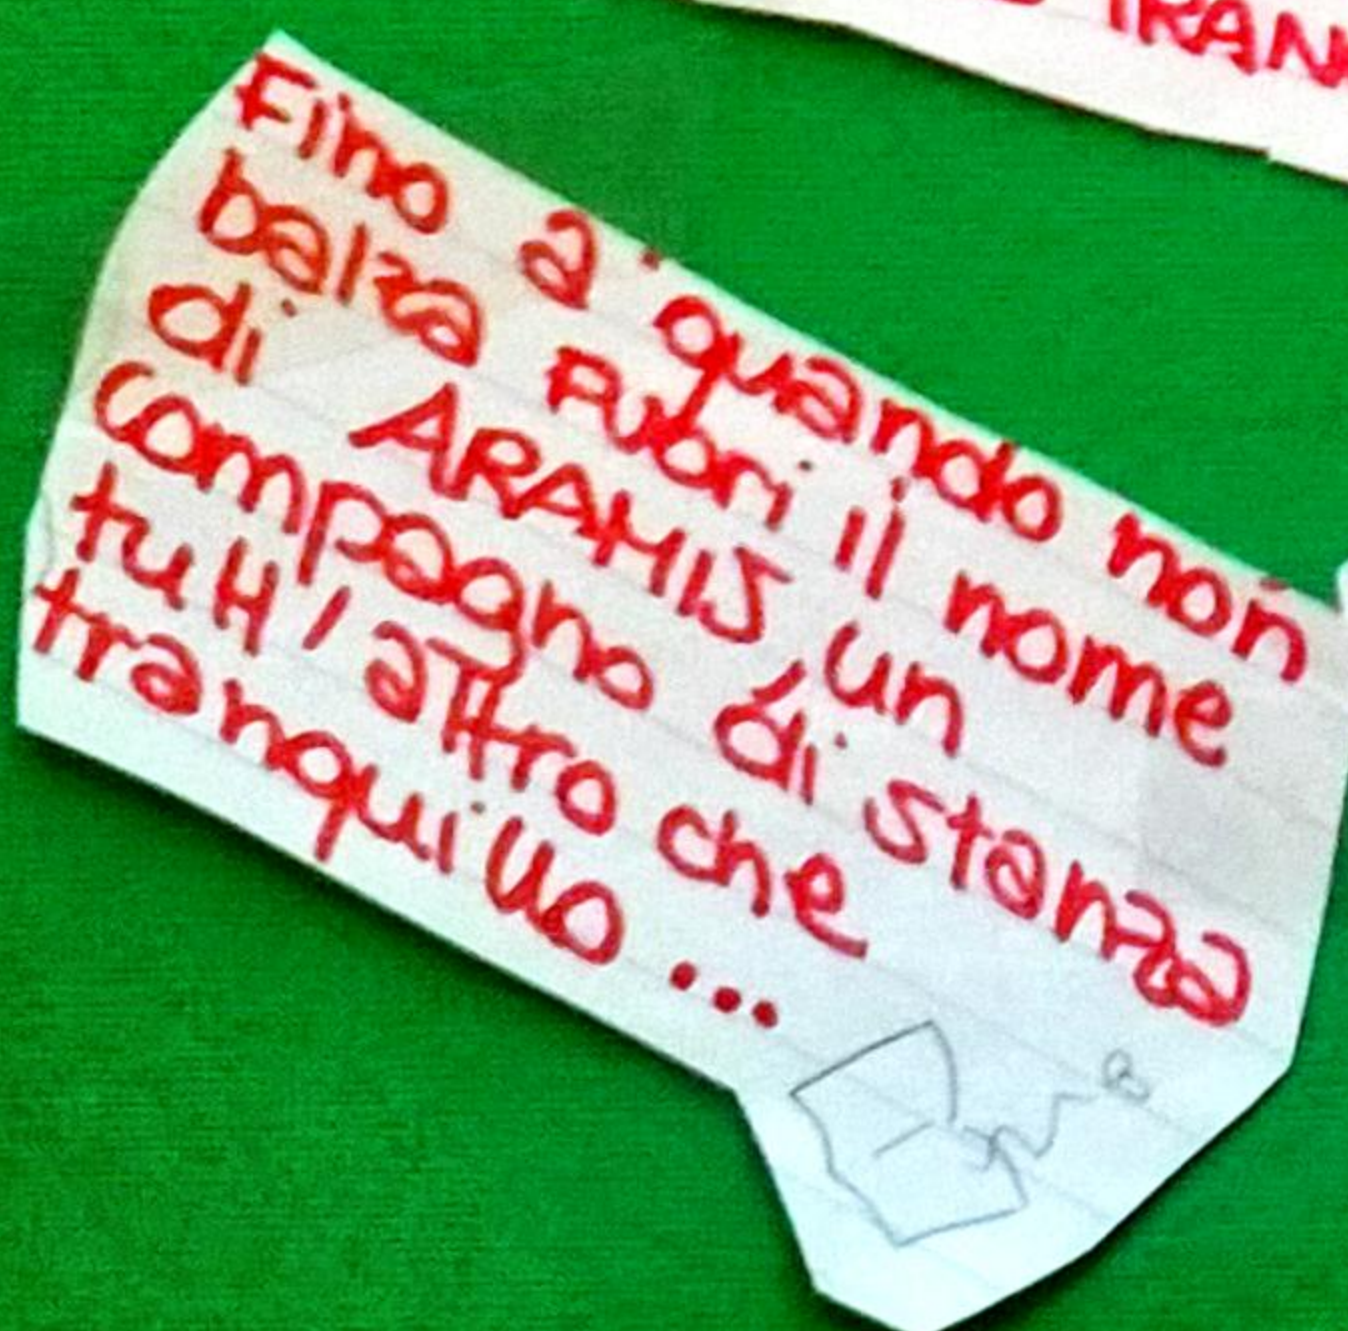 TRAN
Fino a quando non
balza fuori il nome
di ARAMIS, un
compagno di stanza
tutt'altro che
tranquillo...